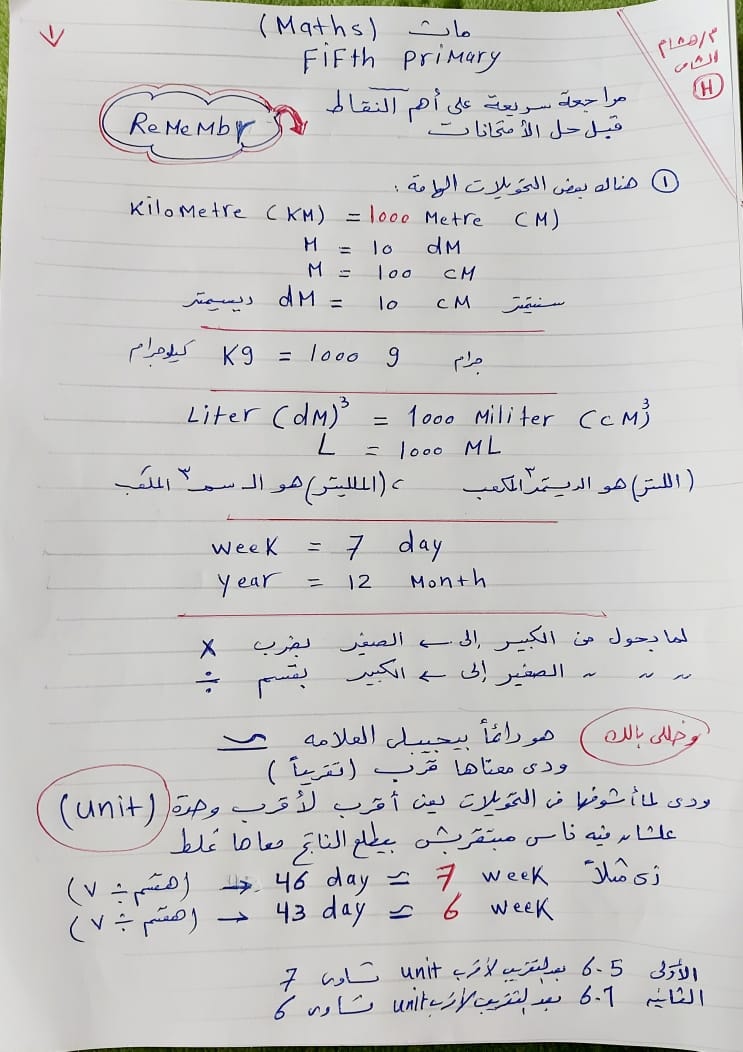 ماث (Maths)
Fifth Primary
م/هشام
الشامى
H
١
مراجعة سريعة على أهم النقاط
قبل حل الأمتحانات
ReMeMbr
① هناك بعض التحويلات الهامة :
Kilometre (KM) = 1000 Metre (M)
M = 10 dM
M = 100 cM
ديسيمتر dM = 10 cM سنتيمتر
كيلوجرام Kg = 1000 g جرام
Liter (dM)³ = 1000 Militer (cM³)
L = 1000 ML
(اللتر) هو الديسمتر٣ المكعب ، (الملليتر) هو الـ سم٣ المكعب
week = 7 day
year = 12 Month
لما بحول من الكبير إلى ← الصغير بضرب ×
〃 〃 〃 الصغير إلى ← الكبير بقسم ÷
وخللى بالك هو دائماً بيجيبلى العلامه ≃
ودى معناها قرب (تقريباً)
ودى لما أشوفها فى التحويلات يعنى أقرب لأقرب وحدة (unit)
علشان فيه ناس مبتقربش بيطلع الناتج معاها غلط
زى مثلاً 46 day ≃ 7 week → (هقسم ÷ ٧)
43 day ≃ 6 week → (هقسم ÷ ٧)
الأولى 6.5 بعد التقريب لأقرب unit تساوى 7
الثانيه 6.1 بعد التقريب لأقرب unit تساوى 6